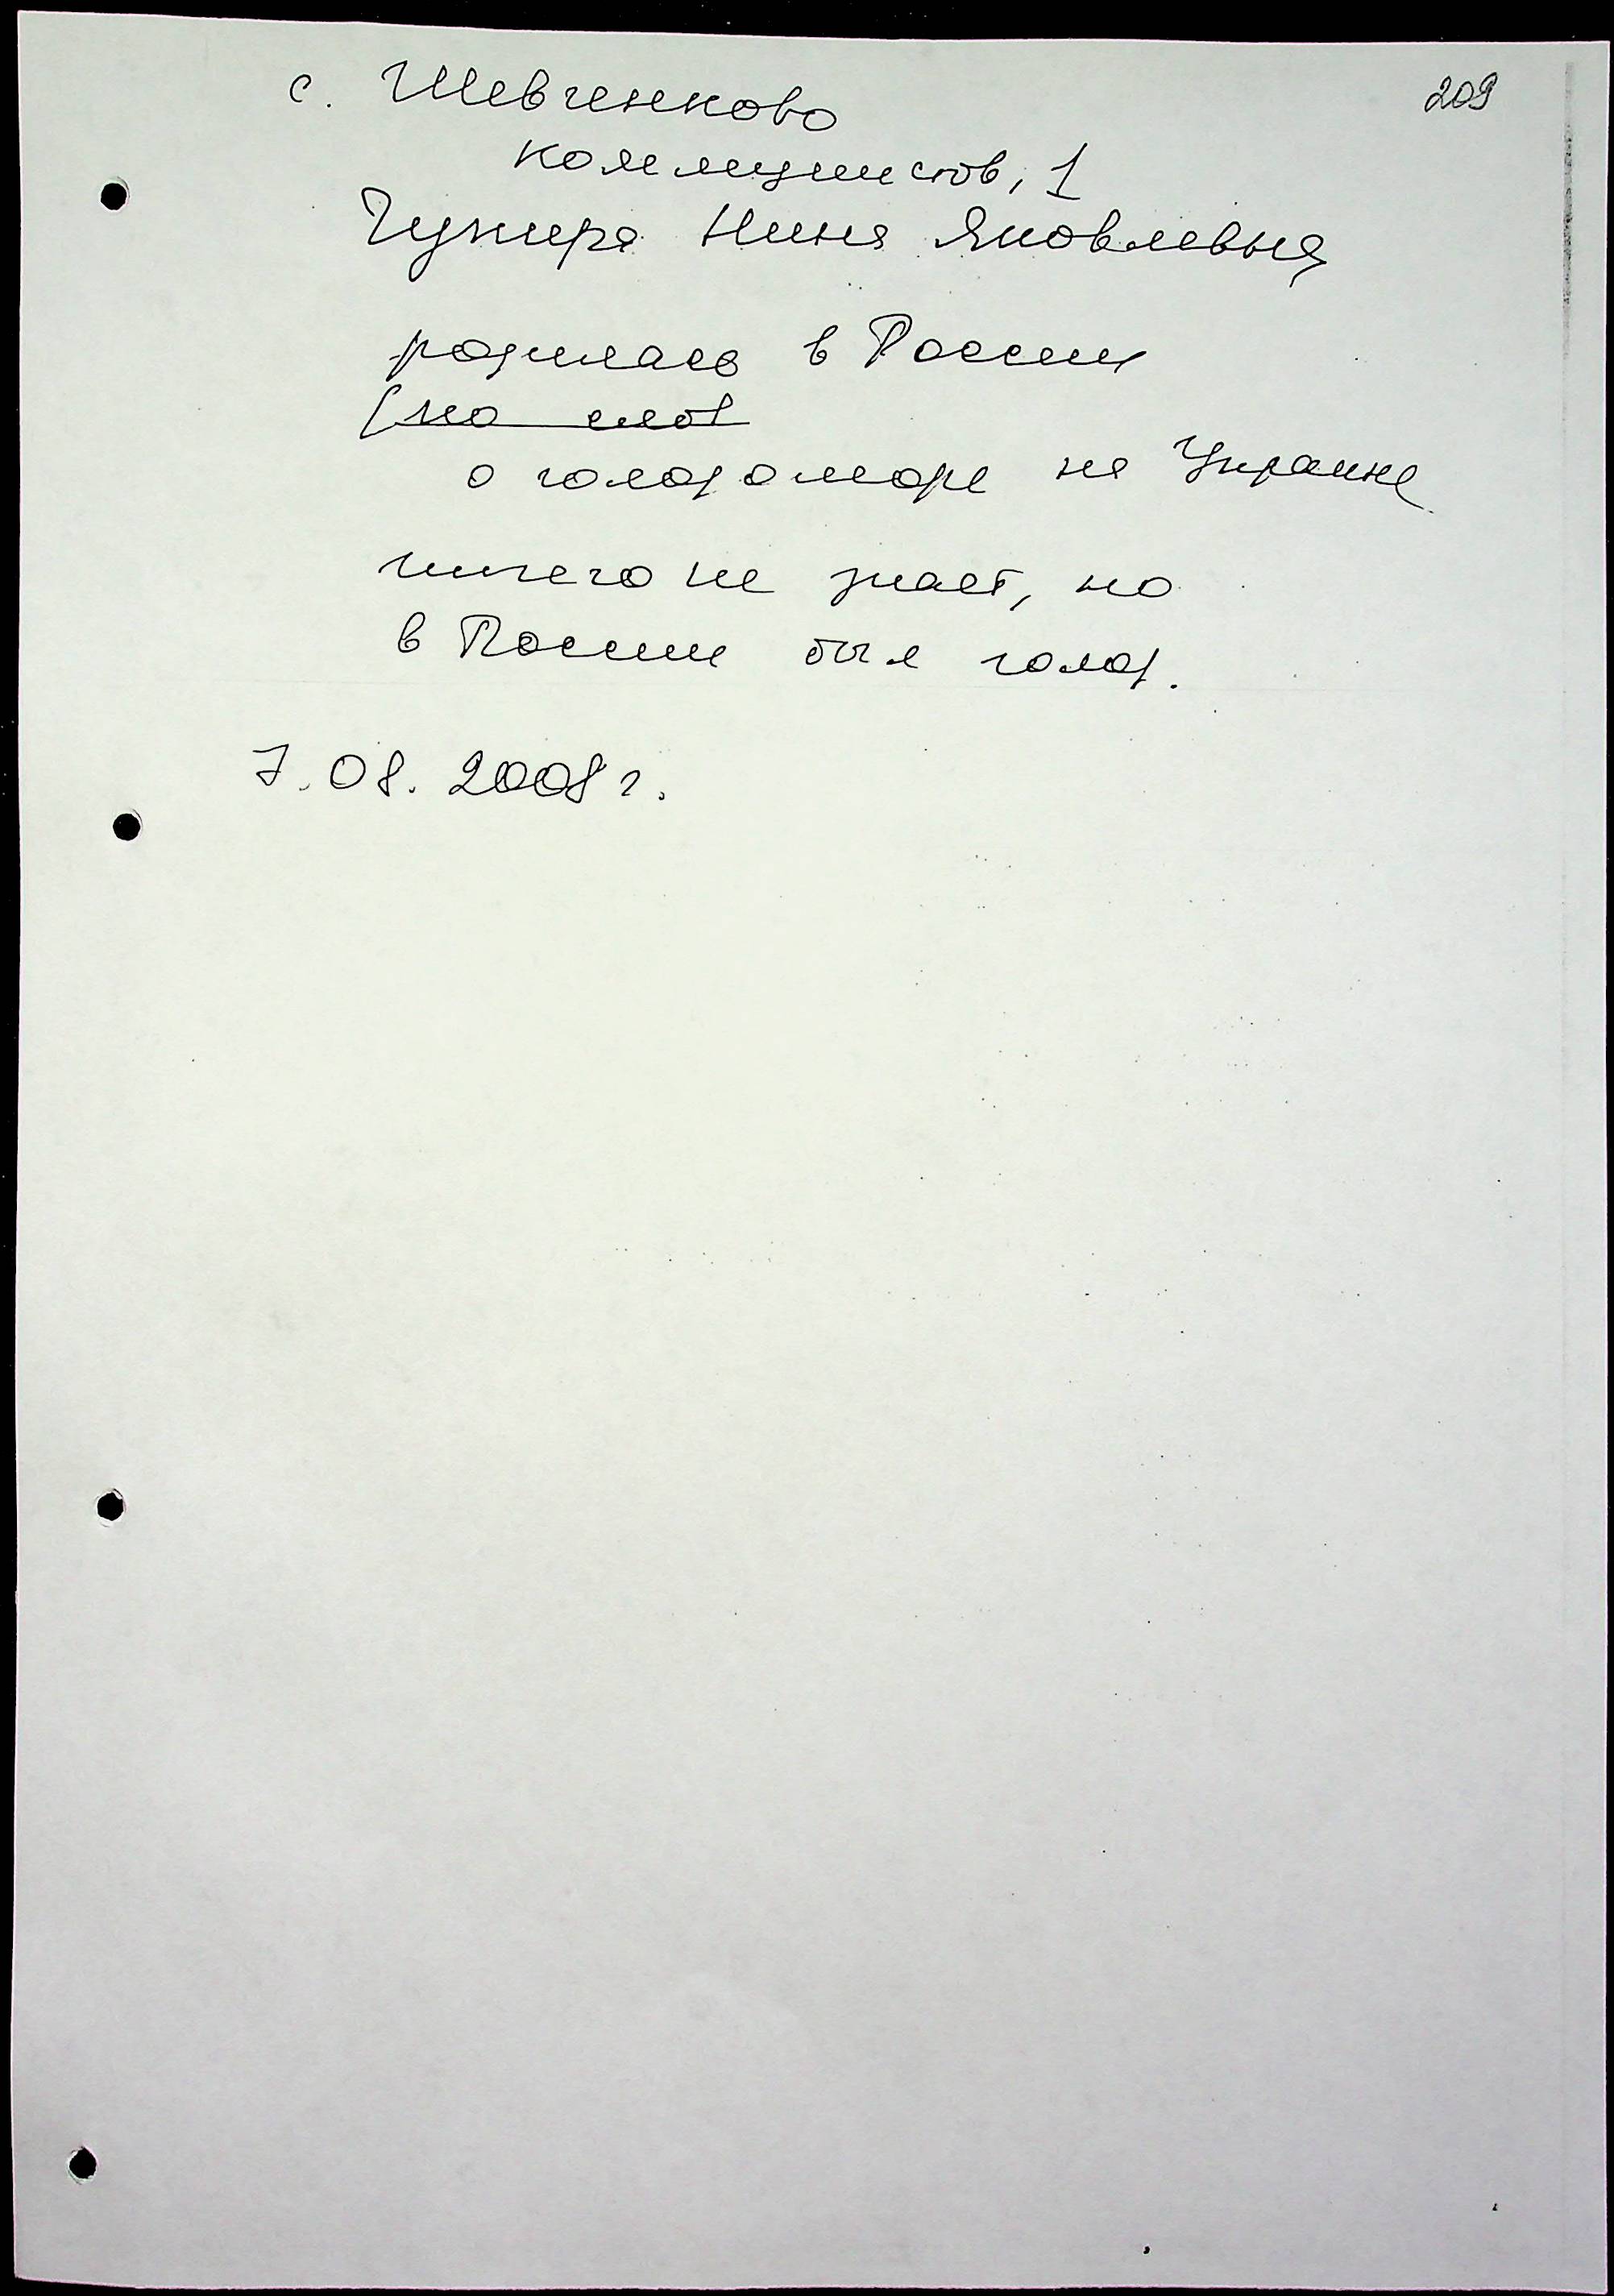 209
с. Шевченково
коммунистов, 1
Нина Яковлевна
родилась в России
о голодоморе на Украине
ничего не знает, но
в России был голод.
7.08.2008 г.